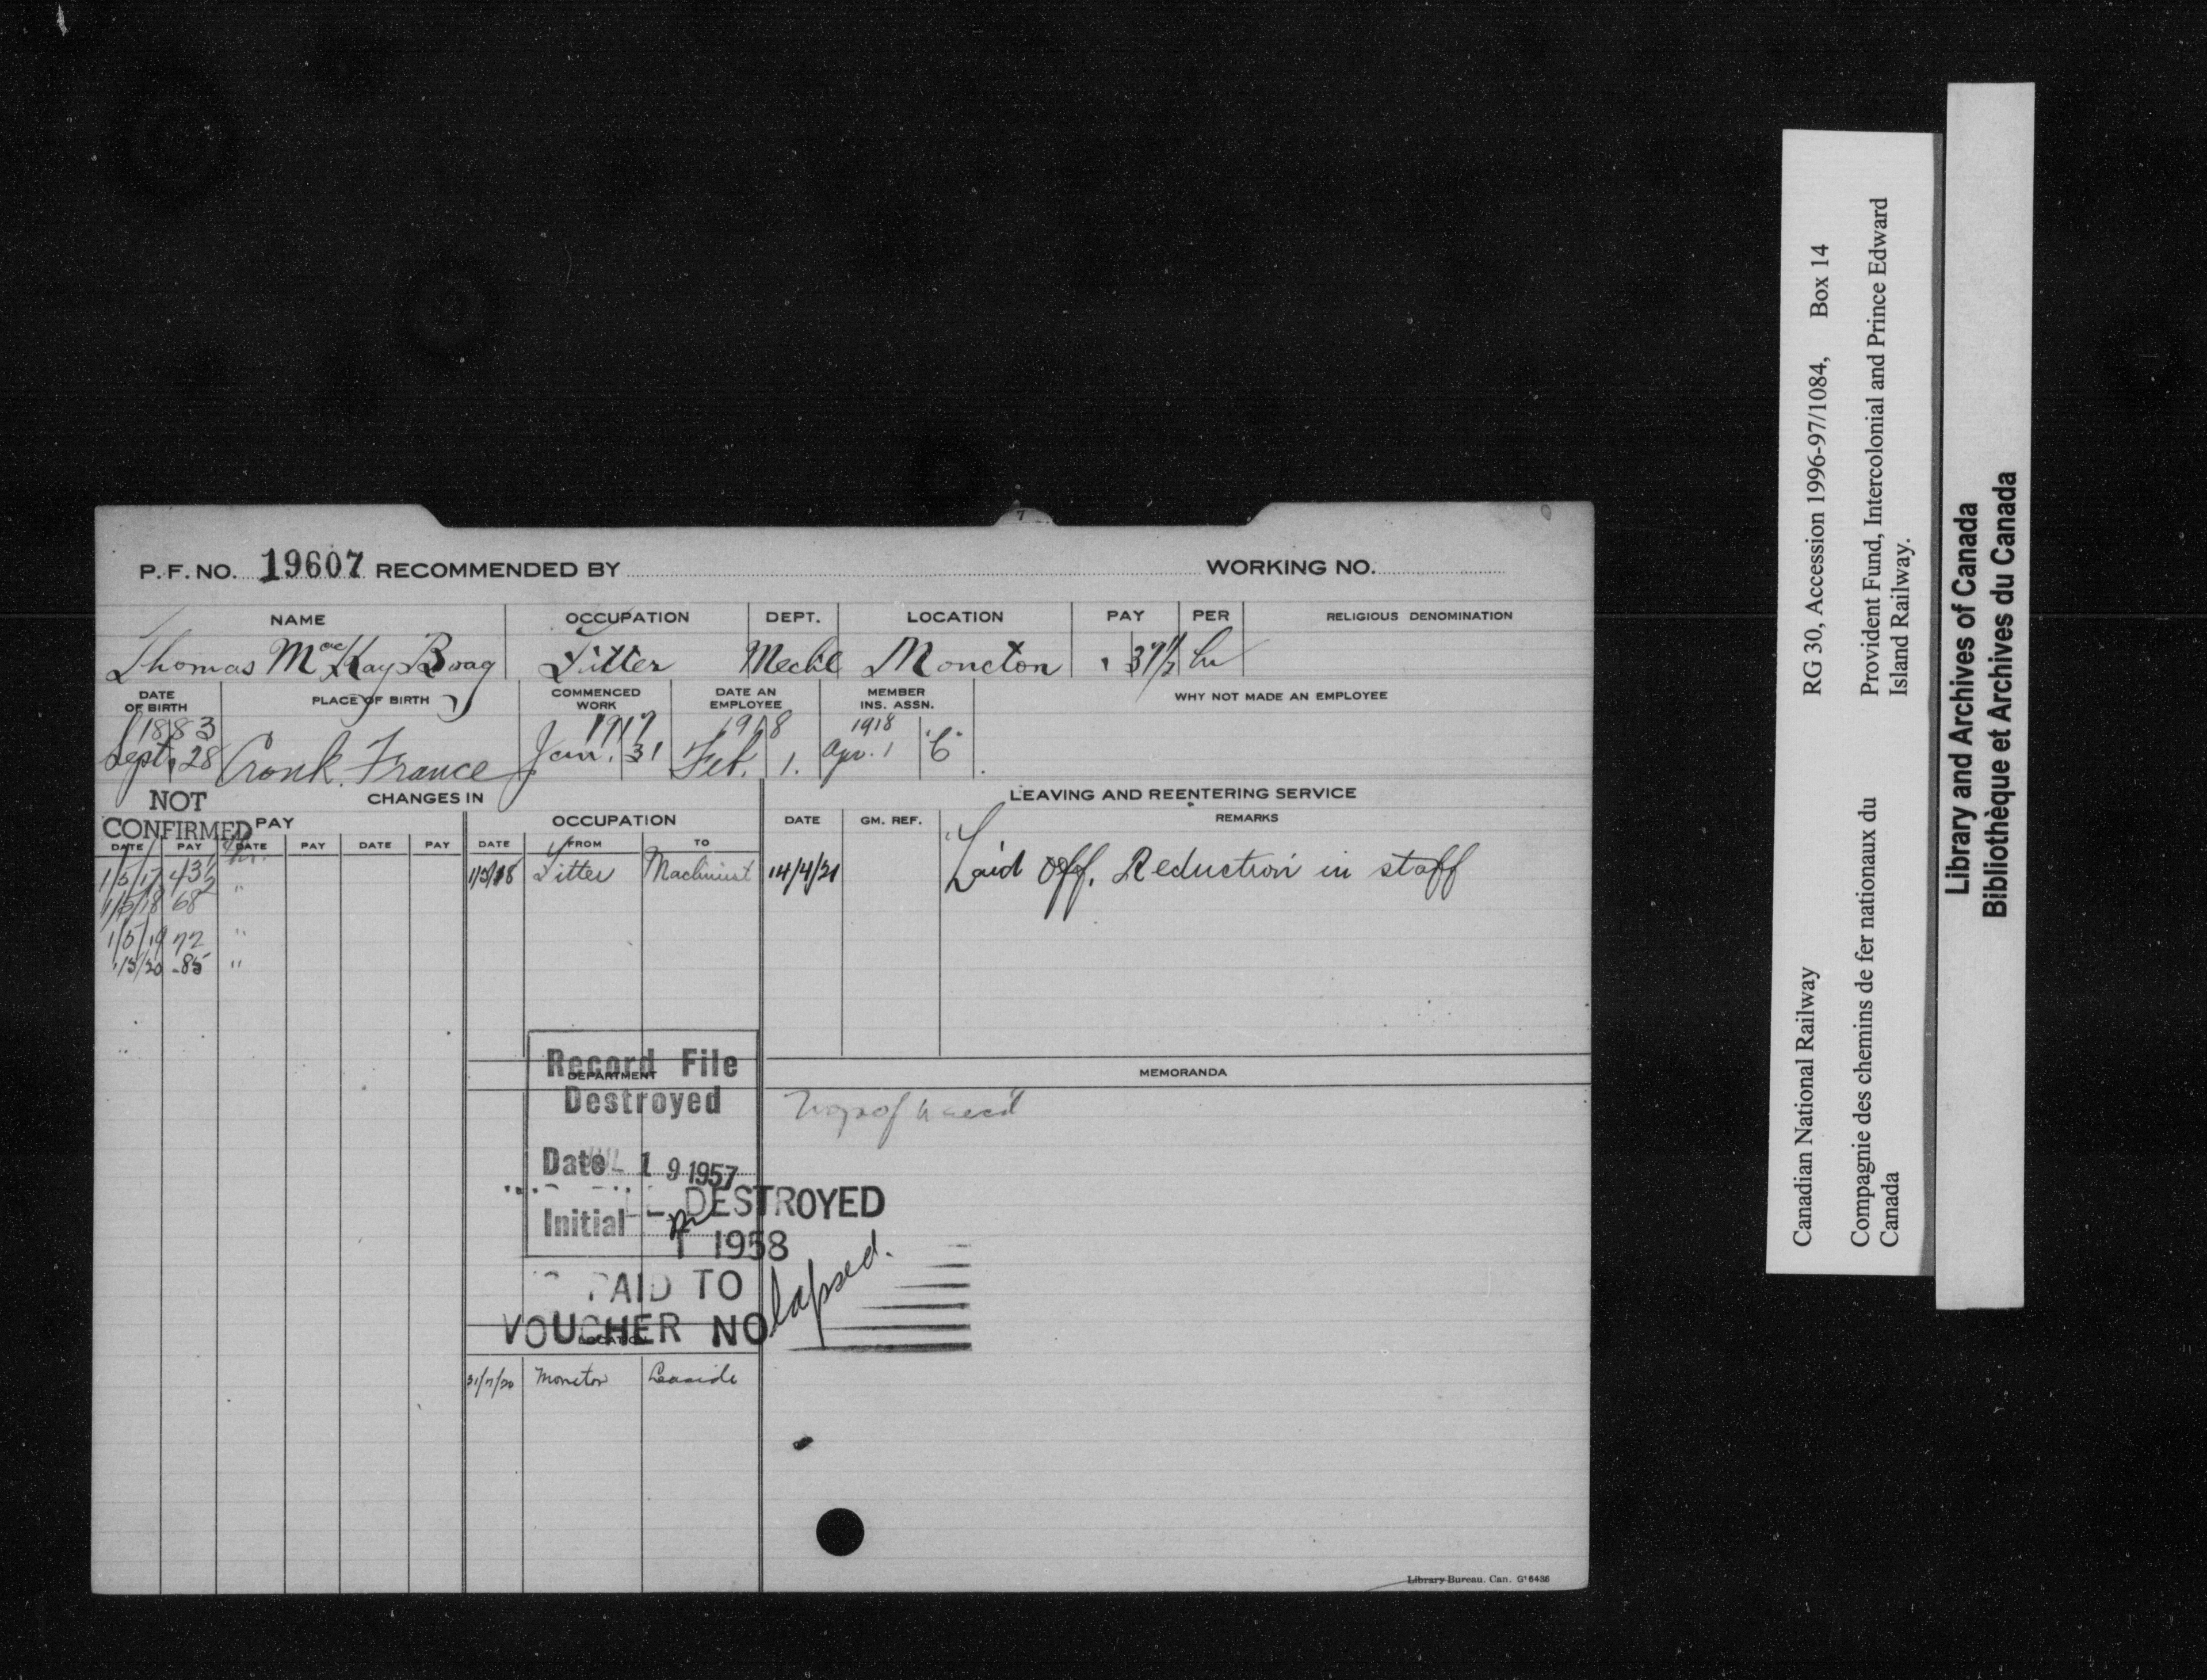 7
P.F. NO. 19607 RECOMMENDED BY WORKING NO.
NAME OCCUPATION DEPT. LOCATION PAY PER RELIGIOUS DENOMINATION
Thomas MacKay Boag Fitter Mechl Moncton . 37½ hr
DATE OF BIRTH PLACE OF BIRTH COMMENCED WORK DATE AN EMPLOYEE MEMBER INS. ASSN. WHY NOT MADE AN EMPLOYEE
1883 1917 1918 1918
Sept. 28 Cronk. France Jan. 31 Feb. 1. Apr. 1 "C"
NOT CONFIRMED
CHANGES IN LEAVING AND REENTERING SERVICE
PAY OCCUPATION DATE GM. REF. REMARKS
DATE PAY DATE PAY DATE PAY DATE FROM TO
1/5/17 43½ hr. Fitter Machinist 14/4/21 Laid off. Reduction in staff
1/5/18 68 "
1/5/19 72 "
1/5/20 .85 "
DEPARTMENT MEMORANDA
Record File
Destroyed
Date JUL 19 1957
Initial
DESTROYED
1 1958
PAID TO
VOUCHER NO lapsed.
LOCATION
31/7/20 Moncton Leaside
Library Bureau. Can. G-6436
Canadian National Railway RG 30, Accession 1996-97/1084, Box 14
Compagnie des chemins de fer nationaux du Canada Provident Fund, Intercolonial and Prince Edward Island Railway.
Library and Archives of Canada
Bibliothèque et Archives du Canada